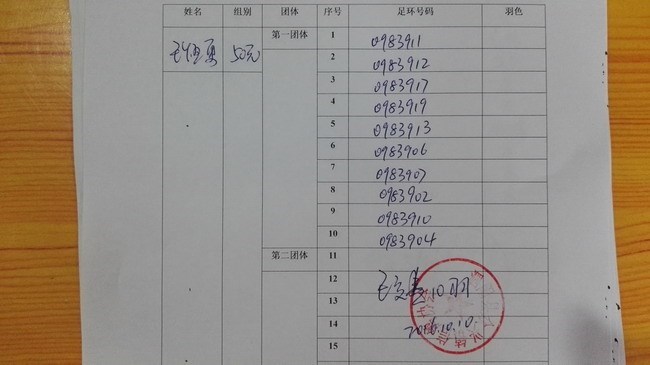 姓名 组别 团体 序号 足环号码 羽色
第一团体 1 0983911
50元 2 0983912
3 0983917
4 0983919
5 0983913
6 0983906
7 0983907
8 0983902
9 0983910
10 0983904
第二团体 11
12 10羽
13
14 2016.10.10.
15